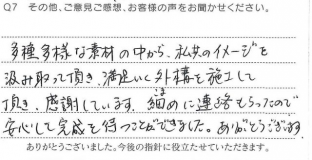 Q7 その他、ご意見ご感想、お客様の声をお聞かせください。
多種多様な素材の中から、私共のイメージを
汲み取って頂き、満足いく外構を施工して
頂き、感謝しています。細めに連絡もらったので
こま
安心して完成を待つことができました。ありがとうございます
ありがとうございました。今後の指針に役立たせていただきます。